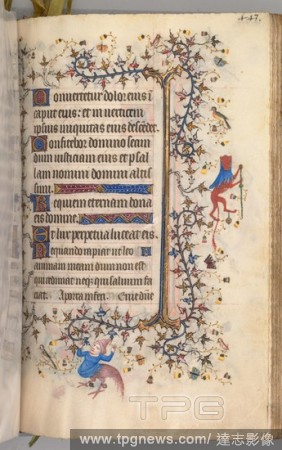 447.
Convertetur dolor eius i
caput eius: et in verticem
ipsius iniquitas eius descedet.
Confitebor domino secun
dum iusticiam eius et psal
lam nomini domini altis
simi.
Requiem eternam dona
eis domine.
Et lux perpetua luceat eis.
Nequando rapiat ut leo
animam meam dum non est
qui redimat neq; qui saluum fa
ciat. A porta inferi. Erue dñe
TPG
www.tpgnews.com/ 達志影像